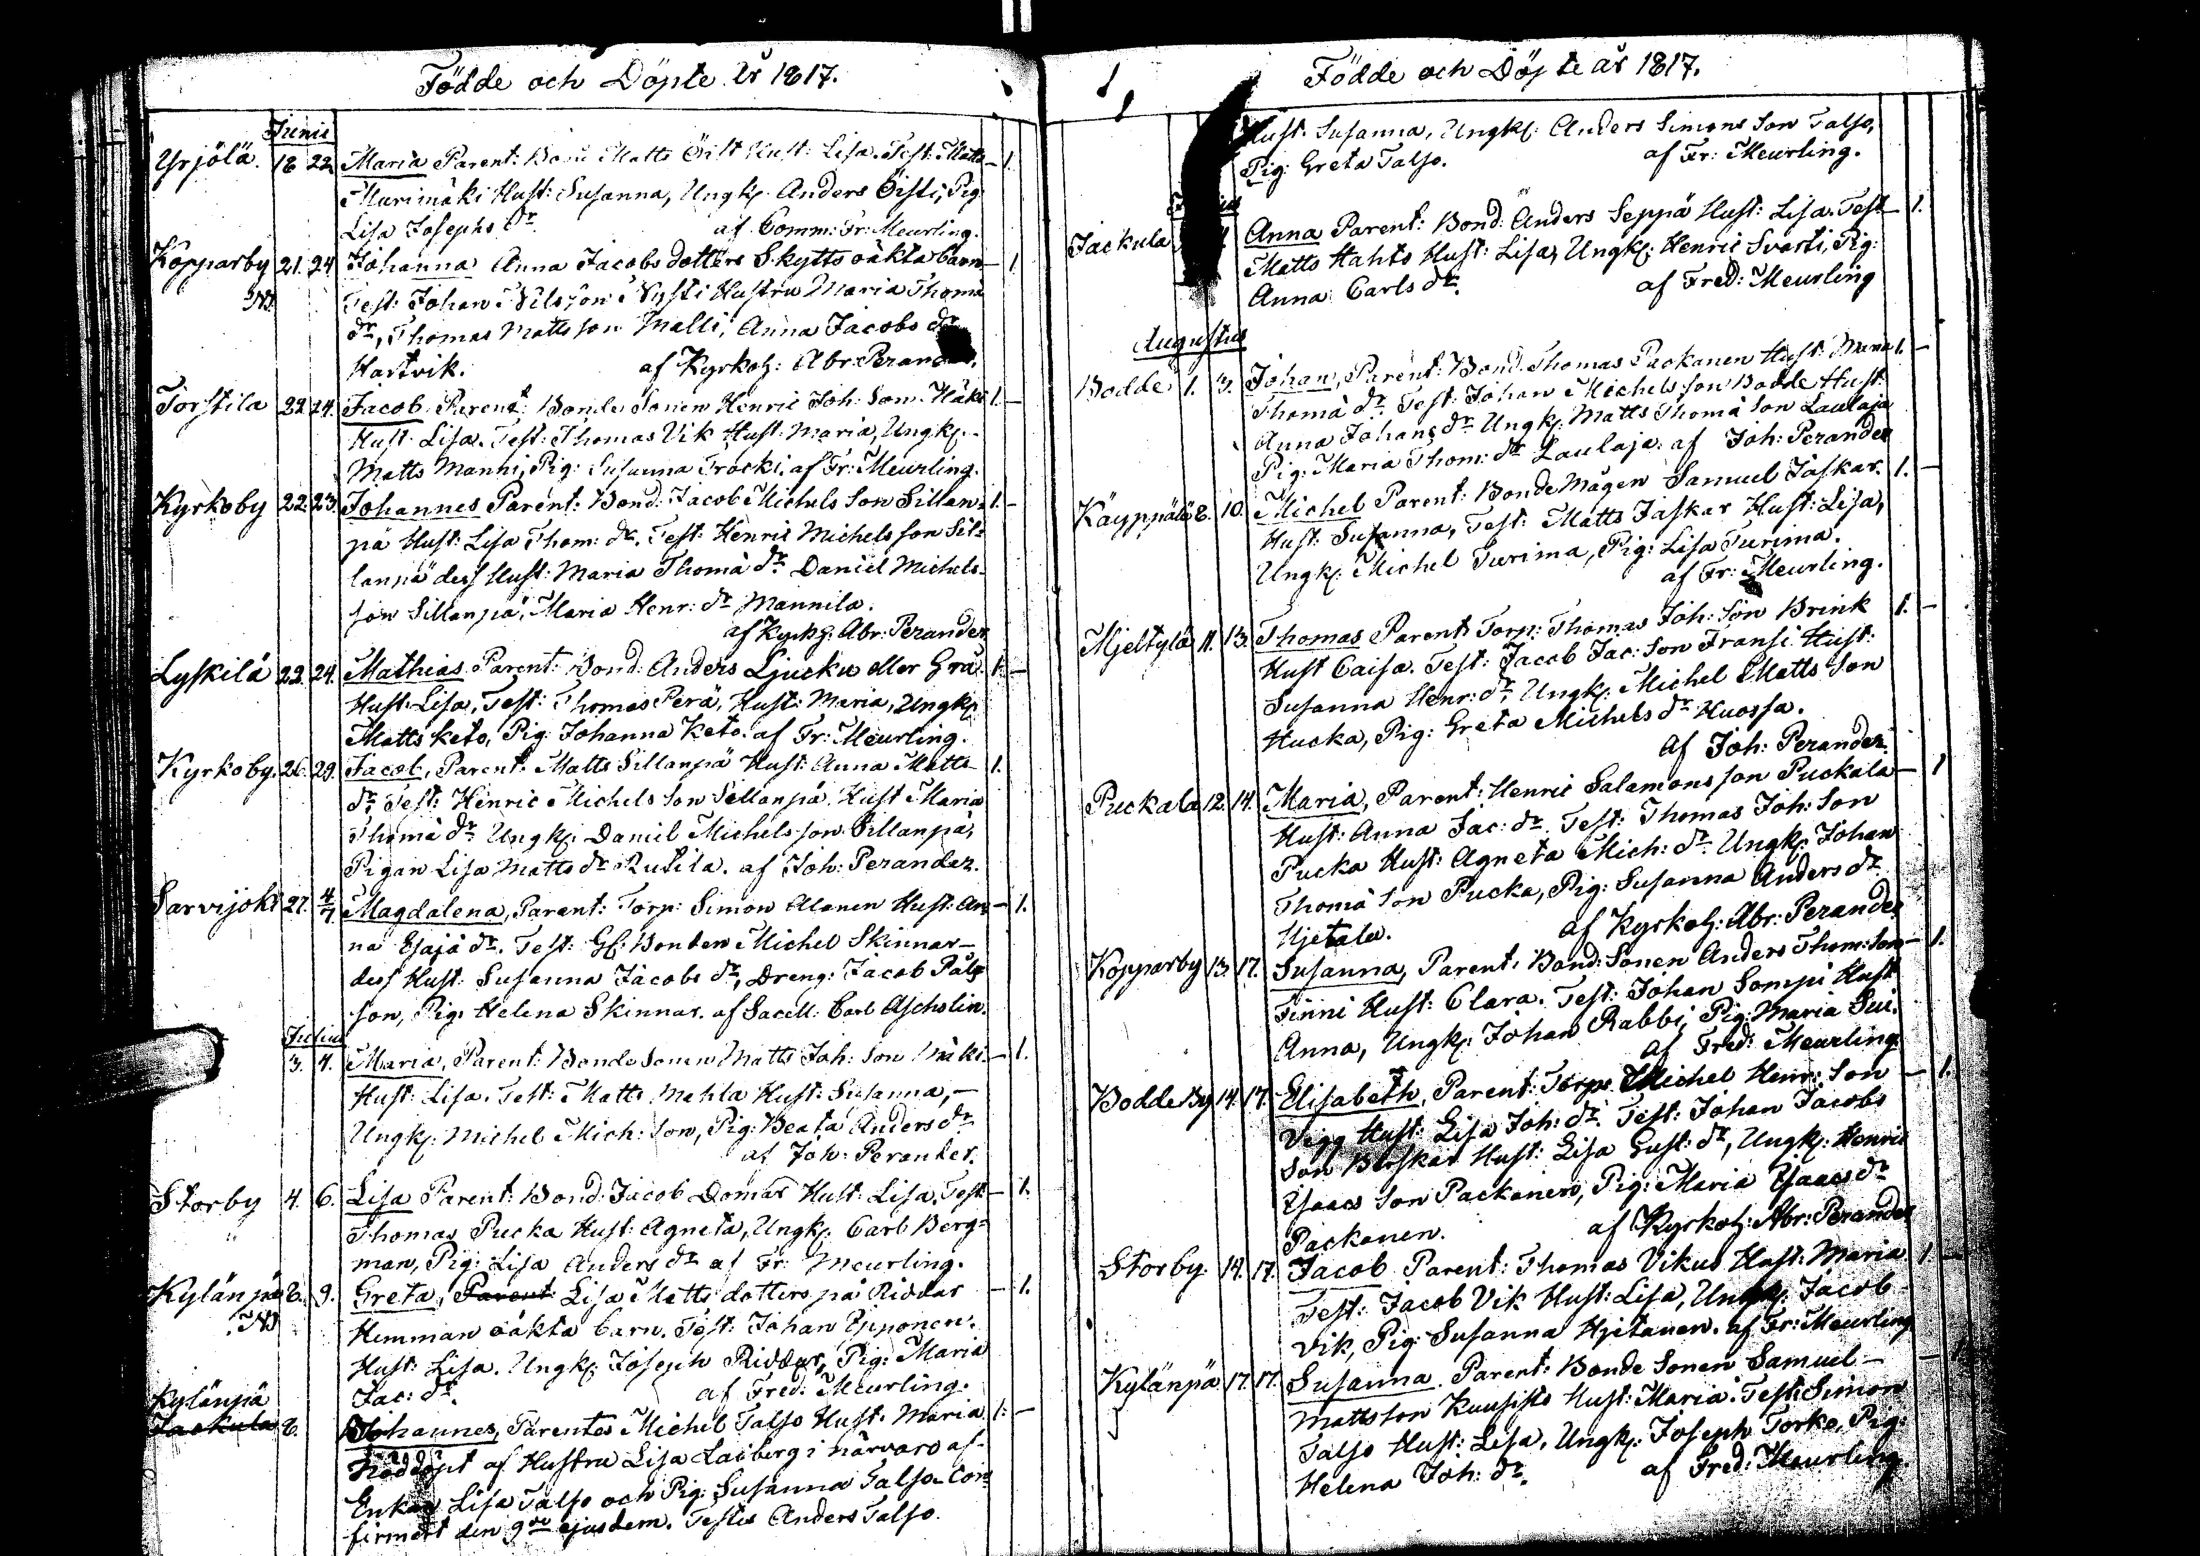 Födde och Döpte år 1817.
Junii
Yrjölä. 18 22 Maria Parent: Bond Matts Öist Hust: Lisa. Test: Matts — 1.
Murimäki Hust: Susanna, Ungk: Anders Öisti, Pig
Lisa Josephs dr. af Comm: Fr: Meurling.
Kopparby 21. 24 Johanna Anna Jacobs dotters Skytts oäkta barn — 1
Test: Johan Nilsson Nysti Hustru Maria Thomä
dr, Thomas Mattsson Malli, Anna Jacobs dr
Hartvik. af Kyrkoh: Abr: Perander.
Torstila 22 24. Jacob. Parent: Bonde Sonen Henric Joh: Son Häki 1. —
Hust: Lisa. Test: Thomas Vik Hust: Maria, Ungk:
Matts Manni, Pig: Susanna Frocki. af Fr: Meurling.
Kyrkoby 22. 23. Johannes Parent: Bond: Jacob Michels Son Sillan= 1. —
pä Hust: Lisa Thom: dr. Test: Henric Michels son Sil=
lanpä des Hust: Maria Thomä dr Daniel Michels
son Sillanpä, Maria Henr: dr Mannila.
af Kyrkh: Abr: Perander
Lyskilä 23. 24. Mathias Parent: Bond: Anders Ljucku eller Grå. 1. —
Hust: Lisa, Test: Thomas Perä, Hust: Maria, Ungk:
Matts Keto, Pig Johanna Keto. af Fr: Meurling.
Kyrkoby. 26. 29. Jacob, Parent: Matts Sillanpä Hust: Anna Matts 1.
dr, Test: Henric Michels Son Sillanpä, Hust Maria
Thomä dr Ungk: Daniel Michels son Sillanpä,
Pigan Lisa Matts dr Rutila. af Joh: Perander.
Sarvijoki 27. 4/7 Magdalena, Parent: Torp: Simon Alanen Hust: An= — 1.
na Esajä dr. Test: Gl: Bonden Michel Skinnar —
des Hust: Susanna Jacobs dr, Dreng: Jacob Påls
son, Pig: Helena Skinnar. af Sacell: Carl Ascholin.
Julius
3. 4. Maria, Parent: Bonde Sonen Matts Joh: Son Mäki — 1.
Hust: Lisa. Test: Matts Mehla Hust: Susanna, —
Ungk: Michel Mich: Son, Pig: Beata Anders dr
af Joh: Perander.
Storby 4. 6. Lisa Parent: Bond: Jacob Domar Hust: Lisa, Test — 1.
Thomas Pucka Hust: Agneta, Ungk: Carl Berg=
man, Pig: Lisa Anders dr af Fr: Meurling.
Kylänpä 8. 9. Greta, Parent: Lisa Matts dotters på Riddar — 1.
Hemman oäkta barn. Test: Johan Epponen.
Hust: Lisa. Ungk: Joseph Riddar, Pig: Maria
Jac: dr. af Fred: Meurling.
Kylänpä
Jackula 8. Johannes, Parentes Michel Talso Hust: Maria 1. —
nöddöpt af Hustru Lisa Laiberg i närvaro af
Enkan Lisa Talso och Pig: Susanna Talso. Con=
firmert den 9de ejusdem. Testis Anders Talso.
Födde och Döpte år 1817.
Hust: Susanna, Ungk: Anders Simons Son Talso,
Pig: Greta Talso. af Fr: Meurling.
Jackula Anna Parent: Bond: Anders Seppä Hust: Lisa. Test — 1.
Matts Hahto Hust: Lisa, Ungk: Henric Svarti, Pig:
Anna Carls dr. af Fred: Meurling
Augustus
Bodde 1. 3. Johan, Parent: Bond. Thomas Packanen Hust: Maria 1. —
Thomä dr. Test: Johan Michels son Bodde Hust:
Anna Johans dr Ungk: Matts Thomä Son Laulaja
Pig: Maria Thom: dr Laulaja. af Joh: Perander
Käyppälä 8. 10. Michel Parent: Bonde Mågen Samuel Jaskar. 1. —
Hust: Susanna, Test: Matts Jaskar Hust: Lisa,
Ungk: Michel Turima, Pig: Lisa Turima.
af Fr: Meurling.
Mjeltylä 11. 13. Thomas Parent: Torp: Thomas Joh: Son Brink 1. —
Hust Caisa. Test: Jacob Jac: Son Fransi Hust:
Susanna Henr: dr, Ungk: Michel Matts Son
Hucka, Pig: Greta Michels dr Huossa.
af Joh: Perander.
Puckala 12. 14. Maria, Parent: Henric Salamons son Puckala — 1
Hust: Anna Jac: dr. Test: Thomas Joh: Son
Pucka Hust: Agneta Mich: dr. Ungk: Johan
Thomä Son Pucka, Pig: Susanna Anders dr
Hjetala. af Kyrkoh: Abr: Perander
Kopparby 13. 17. Susanna, Parent: Bond: Sonen Anders Thom: Son — 1.
Finni Hust: Clara. Test: Johan Sompi Hust
Anna, Ungk: Johan Rabbi, Pig: Maria Sui.
af Fred: Meurling
Bodde By 14. 17. Elisabeth, Parent: Torp: Michel Henr: Son — 1.
Vigg Hust: Lisa Joh: dr. Test: Johan Jacobs
Son Buskar Hust: Lisa Gust: dr, Ungk: Henric
Esaacs Son Packanen, Pig: Maria Esaacs dr
Packanen. af Kyrkoh: Abr: Perander
Storby. 14. 17. Jacob Parent: Thomas Vikus Hust: Maria 1 —
Test: Jacob Vik Hust: Lisa, Ungk: Jacob
Vik, Pig: Susanna Hjetanen. af Fr: Meurling
Kylänpä 17. 17. Susanna. Parent: Bonde Sonen Samuel — — 1
Mattsson Kuusisto Hust: Maria. Test: Simon
Talso Hust: Lisa, Ungk: Joseph Torko, Pig:
Helena Joh: dr. af Fred: Meurling.